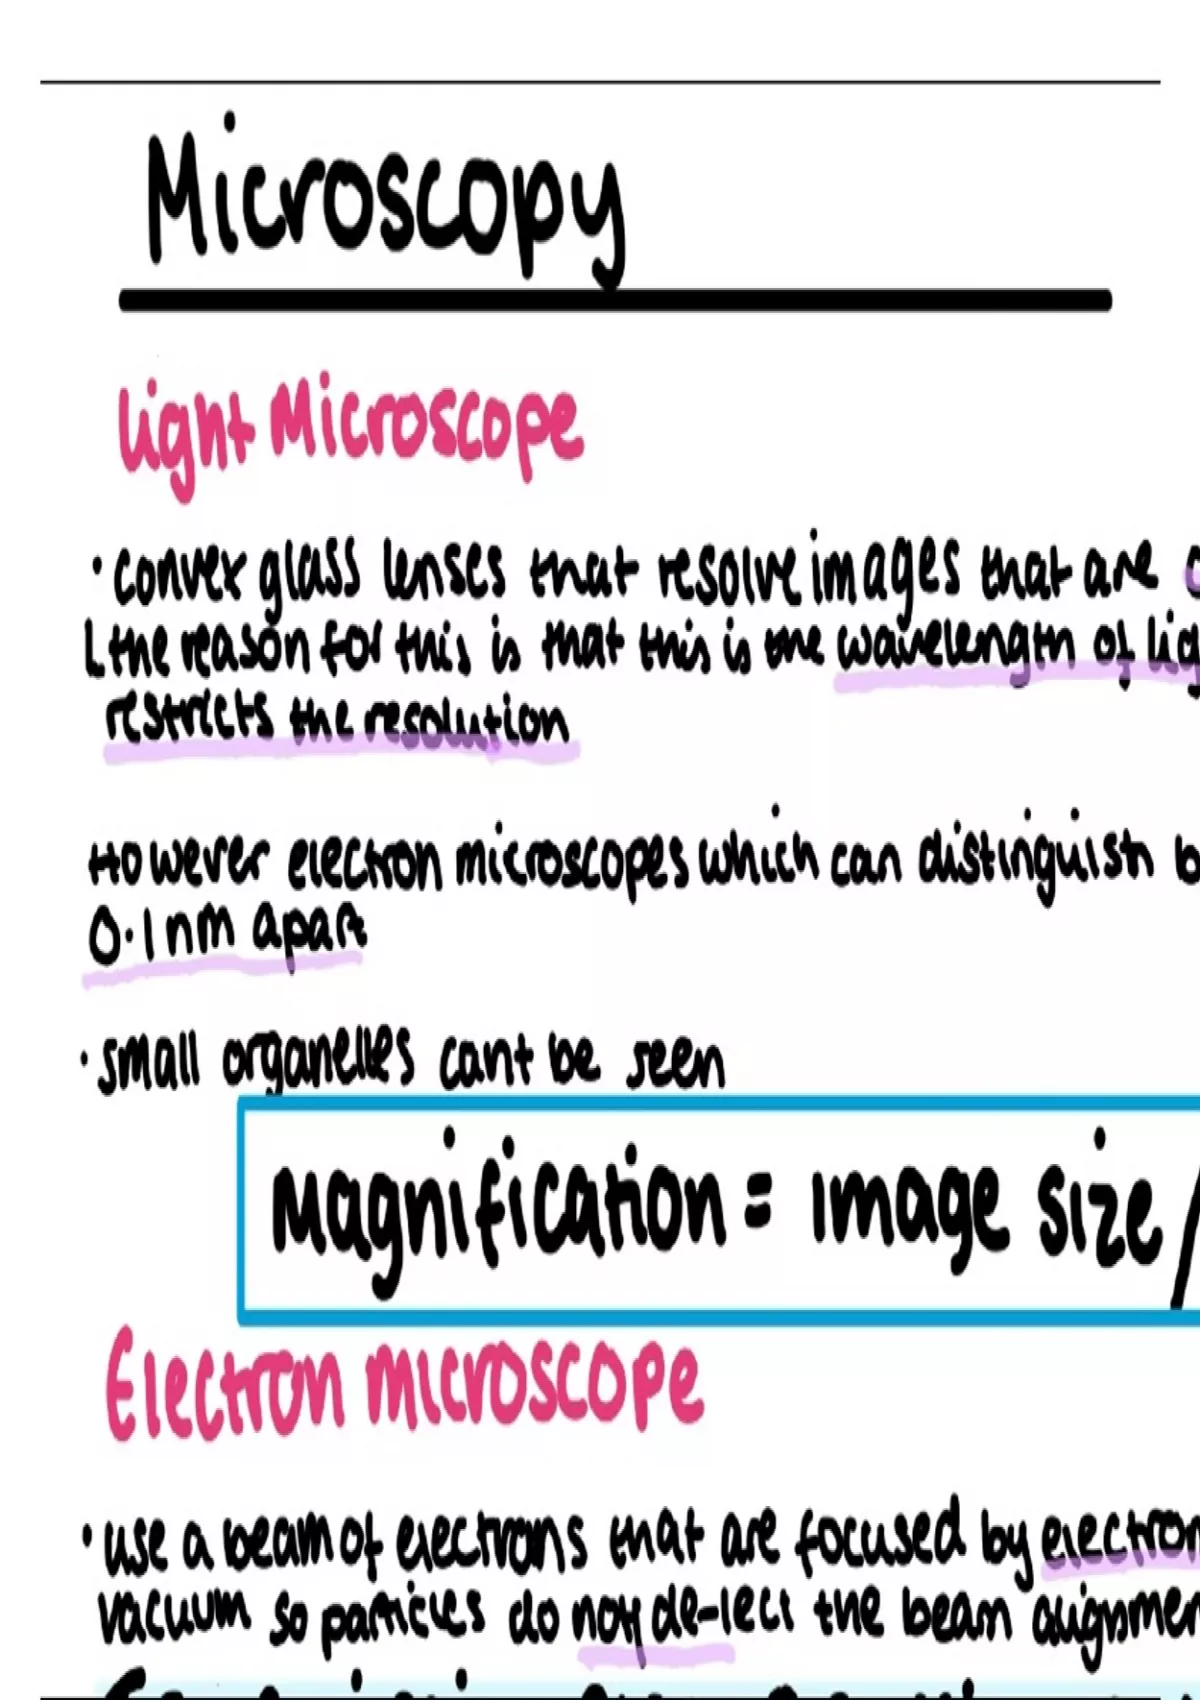 Microscopy
Light Microscope
· convex glass lenses that resolve images that are
L the reason for this is that this is the wavelength of lig
restricts the resolution
However electron microscopes which can distinguish b
0.1nm apart
· small organelles cant be seen
Magnification = image size /
Electron microscope
· use a beam of electrons that are focused by electron
vacuum so particles do not de-lect the beam alignmen